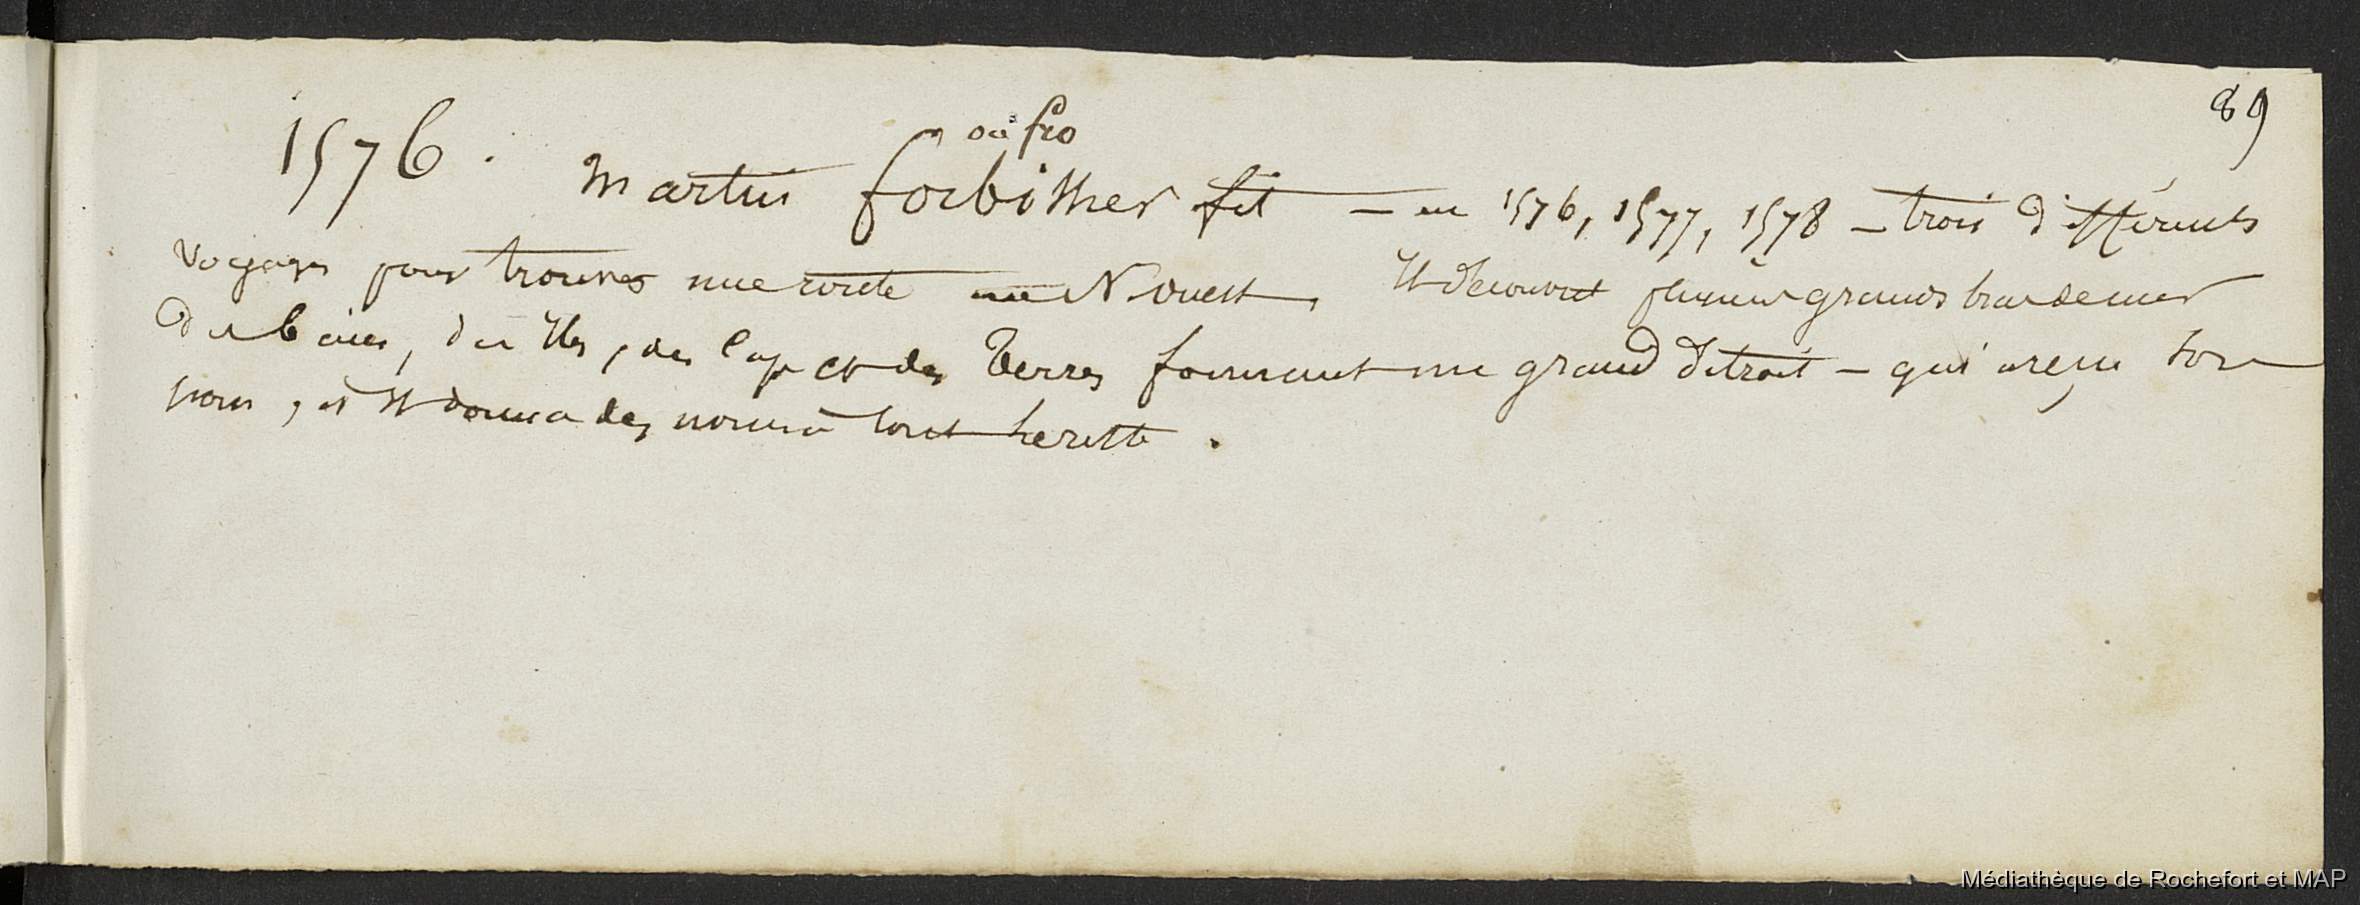 89
1576. Martin forbisher fit – en 1576, 1577, 1578 – trois différents
ou fro
voyages pour trouver une route au N. ouest, Il découvrit plusieurs grands bras de mer
des baies, des Iles, des Caps et des Terres formant un grand détroit – qui a reçu son
nom, et Il donna des noms à tout le reste.
Médiathèque de Rochefort et MAP